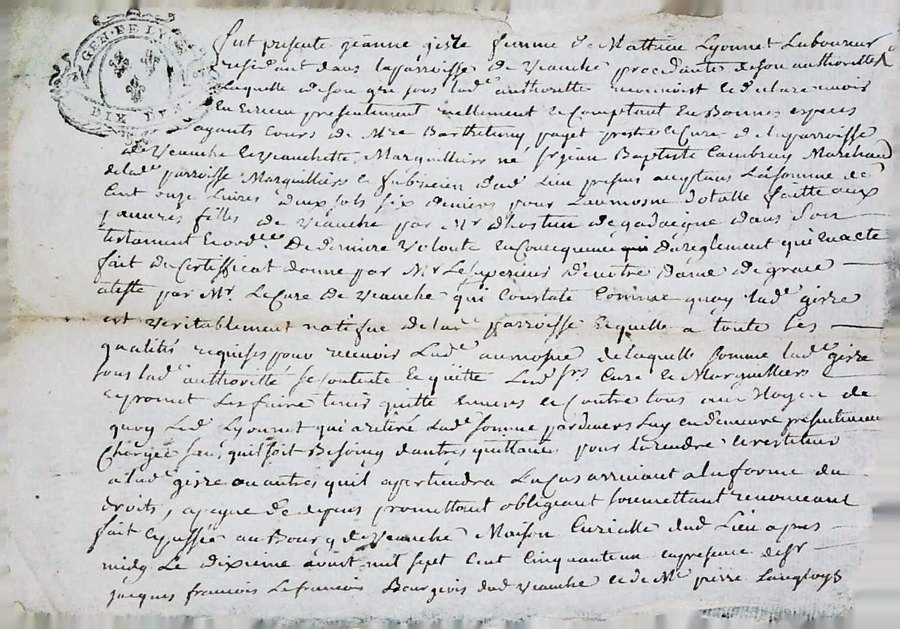 GEN · DE LY
DIX DE
fut presente jeanne gisse femme de Mathieu Lyonnet Laboureur
residant dans la parroisse de Veauche procedante de son authoritté
laquelle de son gré sous lad.e authoritté reconnoit et declare avoir
eu et receu presentement reellement et comptant en Bonnes especes
ayants cours de M.re Barthelemy paget prestre et Curé de la parroisse
de Veauche et Veauchette Marguilliers né Sr jean Baptiste Marchand
de lad.e parroisse Marguilliers et fabricien dud. Lieu presens acceptans La somme de
Cent onze Livres deux sols six deniers pour L'aumosne dotalle faitte aux
pauvres filles de Veauche par Mr d'hostun de gadaigne dans Son
testament et ord.ce De derniere Volonté en Consequence du reglement qui en a eté
fait du Certifficat donné par Mr Le superieur de notre dame de grace
atesté par Mr. Le Curé de Veauche qui Constate Comme quoy lad.e gisse
est veritablement natifue de lad.e parroisse et quelle a toute Les
qualités requises pour recevoir Lad.e aumosne de laquelle somme lad.e gisse
sous lad.e authoritté se contente et quitte Lesd. Srs Curé et Marguilliers
et promet Les faire tenir quitte envers et Contre tous au Moyen de
quoy Led. Lyonnet qui a retiré Lad.e somme pardevers Luy en demeure presentement
Chargée sans quil soit Besoing d'autres quittances pour La rendre et restituer
a lad.e gisse ou autres quil apertiendra Le cas arrivant a la forme du
droits, a peyne de depens promettant obligeant soumettant renonceant
fait et passé au Bourg de Veauche Maison Curialle dud. Lieu apres
midy Le dixieme avril mil sept Cent Cinquante un en presence de Sr
jacques francois Lefrancois Bourgeois dud. Veauche et de Me pierre Langloys